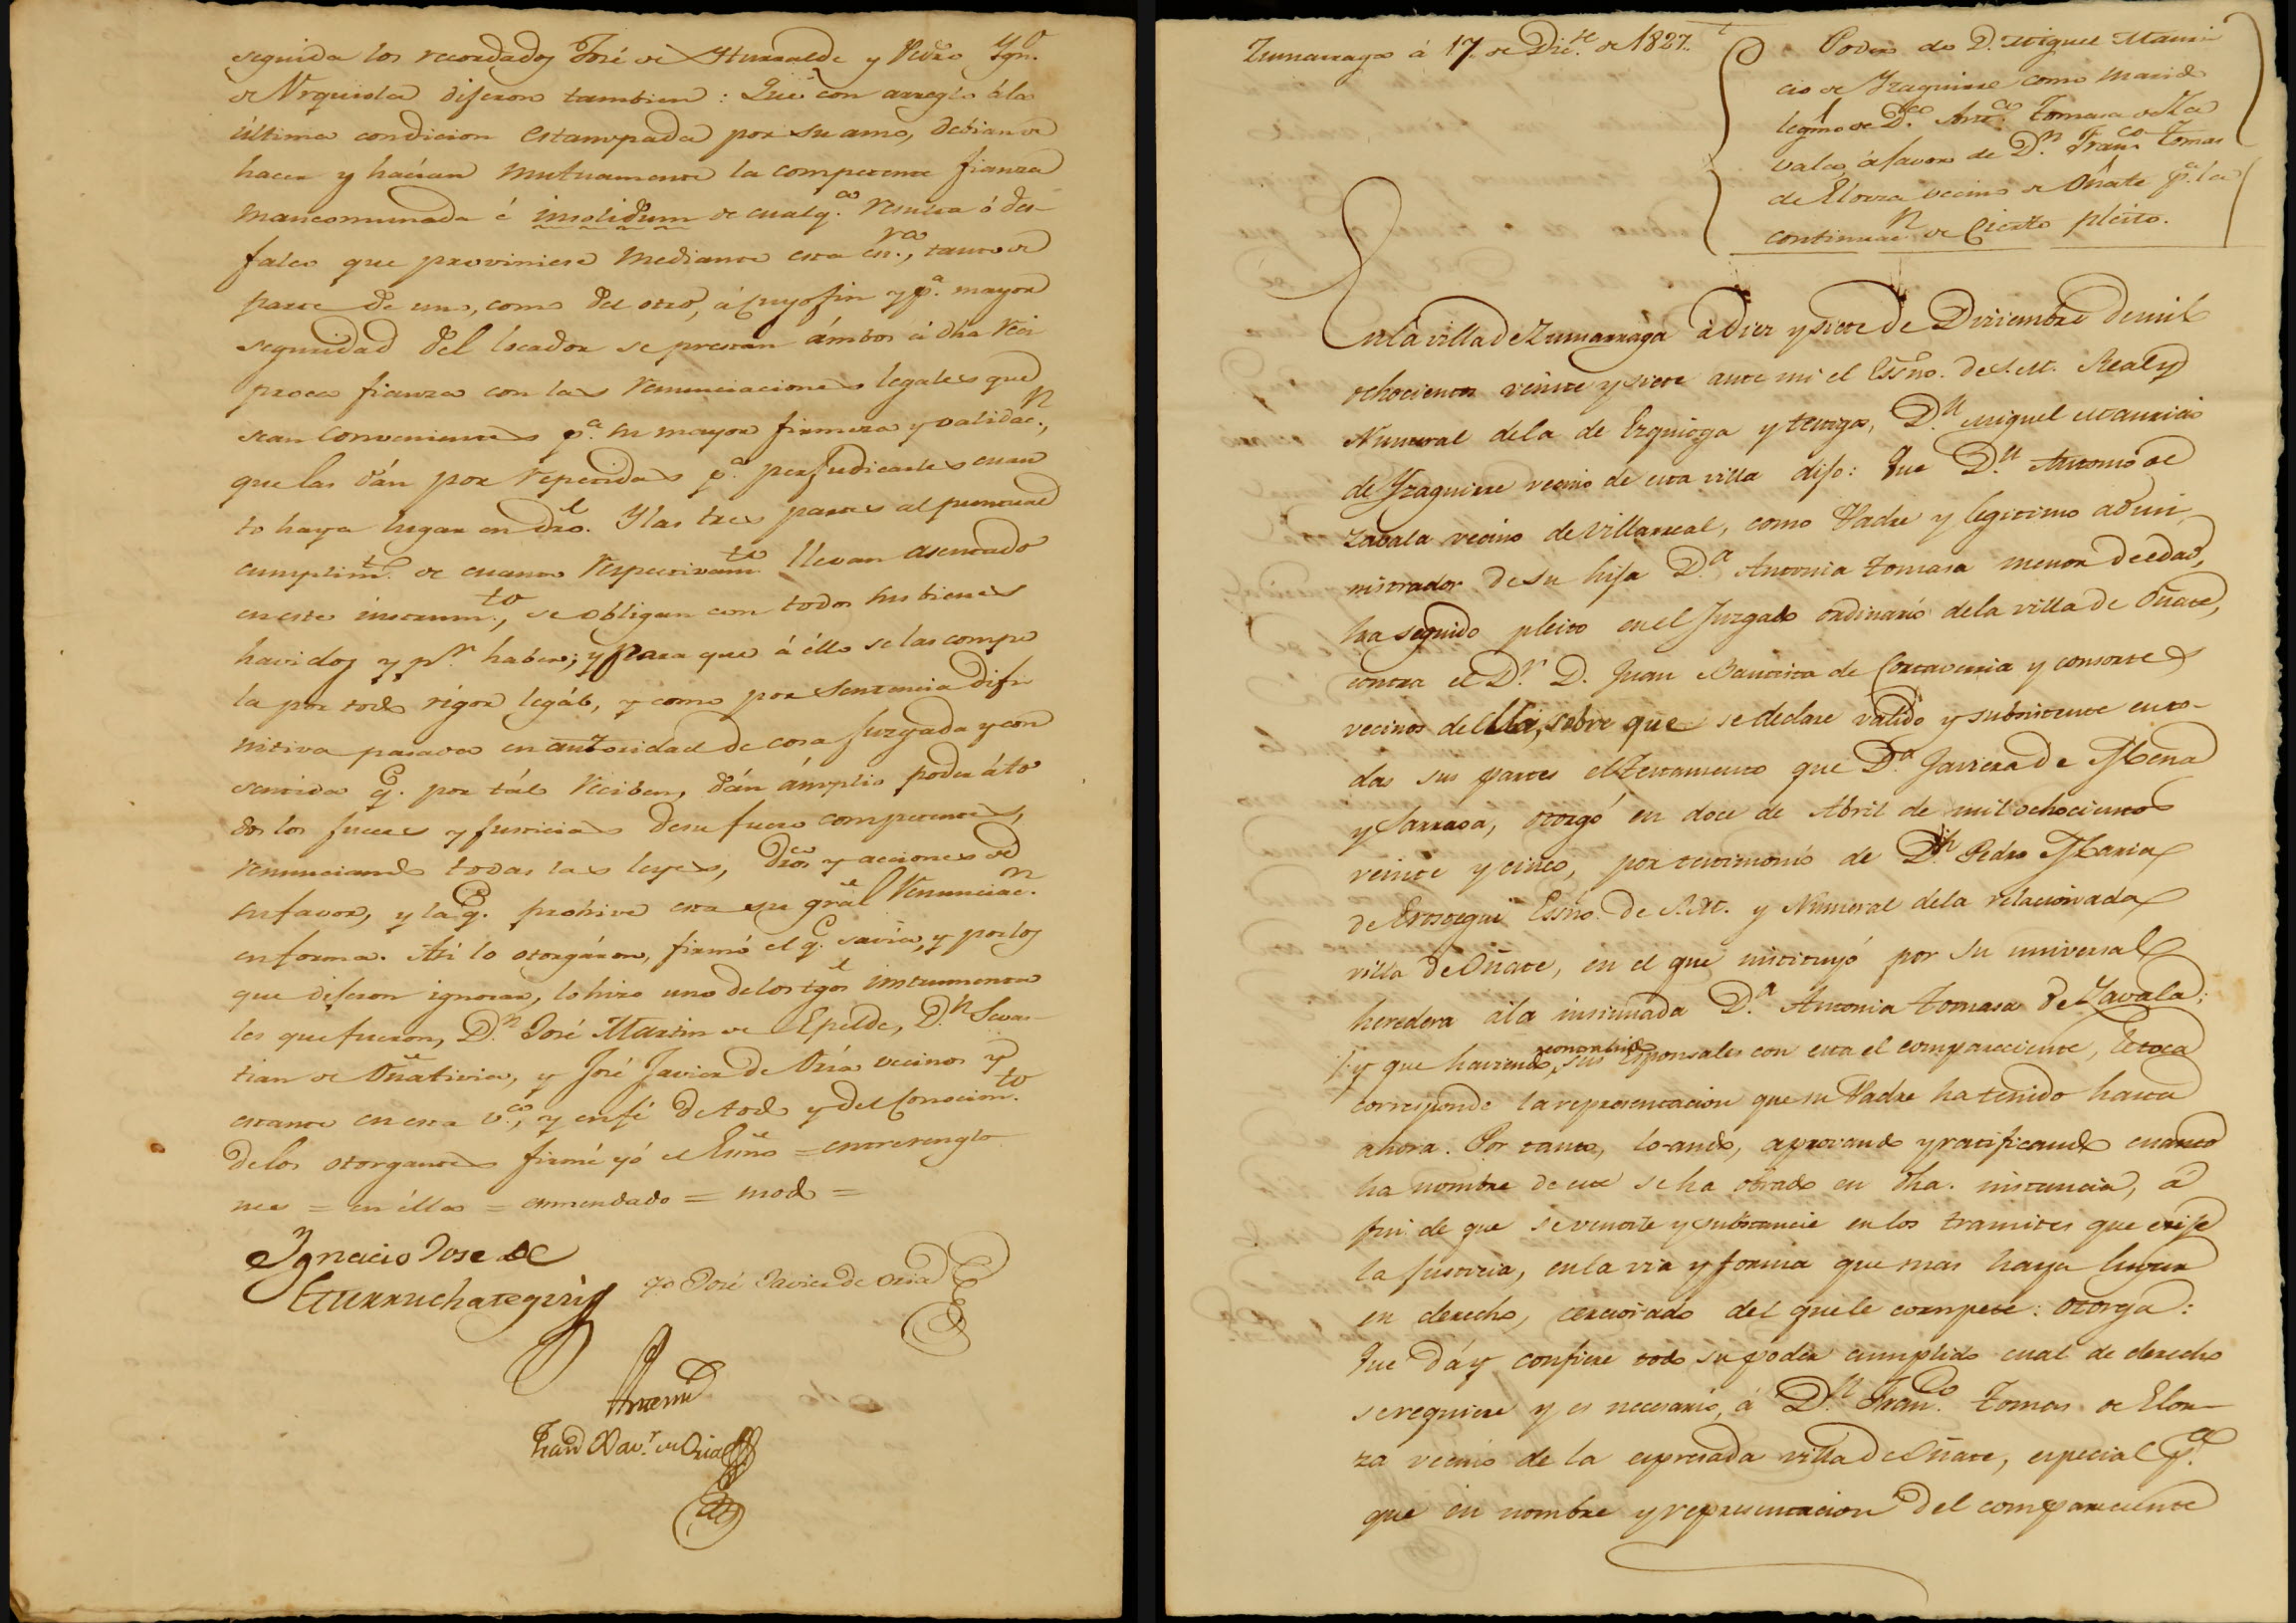 seguida los recordados José de Yturralde y Pedro Ygn.º
de Vrquiola dijeron tambien: Que con arreglo á la
última condicion estampada por su amo, debian de
hacer y hacian mutuamente la competente fianza
mancomunada é insolidum de cualq.ª resulta ó des-
falco que proviniese mediante esta es.ra, tanto de
parte de uno, como del otro, á cuyo fin y p.ª mayor
seguridad del locador se prestan ámbos á dha reci
proca fianza con las renunciaciones legales que
sean convenientes p.ª su mayor firmeza y validac.n,
que las dán por repetidas p.ª perjudicarles cuan
to haya lugar en dro. Y las tres partes al puntual
cumplim.to de cuanto respectivam.te llevan asentado
en este instrum.to, se obligan con todos sus bienes
havidos y p.r haber; y para que á éllo se las compe
la por todo rigor legál, y como por sentencia difi
nitiva pasada en autoridad de cosa juzgada y con
sentida q.e por tál reciben, dán ámplio poder á to
dos los jueces y justicias de su fuero competentes,
renunciando todas las leyes, dros y acciones de
su favor, y la q.e prohive esta que grâl renunciac.n
en forma. Así lo otorgáron, firmó el q.e savía, y por los
que dijeron ignorar, lo hizo uno de los tgos instrumenta
les que fueron, D.n José Martin de Epelde, D.n Sevas-
tian de Oñativia, y José Javier de Oria vecinos y
estante en esta v.ª, y en fé de todo y del conocim.to
de los otorgantes firmé yó el Esno = entrerenglo
nes = en éllas = enmendado = mod =
Ygnacio Jose de
Yturruchategirig
yo José Javier de oria
Ante mi
Fran.co Xav.r de Oria
Zumarraga á 17. de Dic.re de 1827.
Poder de D. Miguel Mauri
cio de Yzaguirre como marido
legmo de D.ª Ant.ª Tomasa de Za
vala, á favor de D.n Fran.co Tomas
de Elorza vecino de Oñate p.ª la
continuac.n de Cierto pleito.
En la villa de Zumarraga á diez y siete de Diziembre de mil
ochocientos veinte y siete ante mi el Essno. de S.M. Real y
Numeral de la de Ezquioga y testigos, D.n Miguel Mauricio
de Yzaguirre vecino de esta villa dijo: Que D.n Antonio de
Zabala vecino de Villarreal, como Padre y legitimo admi
nistrador de su hija D.ª Antonia Tomasa menor de edad,
ha seguido pleito en el Juzgado ordinario de la villa de Oñate,
contra el D.r D. Juan Bautista de Cortaverria y consortes
vecinos de ella, sobre que se declare valido y subsistente en to-
das sus partes el testamento que D.ª Javiera de Mena
y Larraga, otorgó en doce de Abril de mil ochocientos
veinte y cinco, por testimonio de D.n Pedro Maria
de Erostegui Essno. de S.M. y Numeral de la relacionada
villa de Oñate, en el que instituyó por su universal
heredera á la insinuada D.ª Antonia Tomasa de Zavala;
y que haviendo contrahido sus Esponsales con esta el compareciente, le toca
corresponde la representacion que su Padre ha tenido hasta
ahora. Por tanto, lo-ando, aprovando y ratificando cuanto
ha nombre de este se ha obrado en dha. instancia, á
fin de que se venti­le y substancie en los tramites que exije
la justicia, en la via y forma que mas haya lugar
en derecho, cerciorado del que le compete: otorga:
Que dá y confiere todo su poder cumplido cual de derecho
se requiere y es necesario, á D.n Fran.co Tomas de Elor-
za vecino de la espresada villa de Oñate, especial p.ª
que en nombre y representacion del compareciente